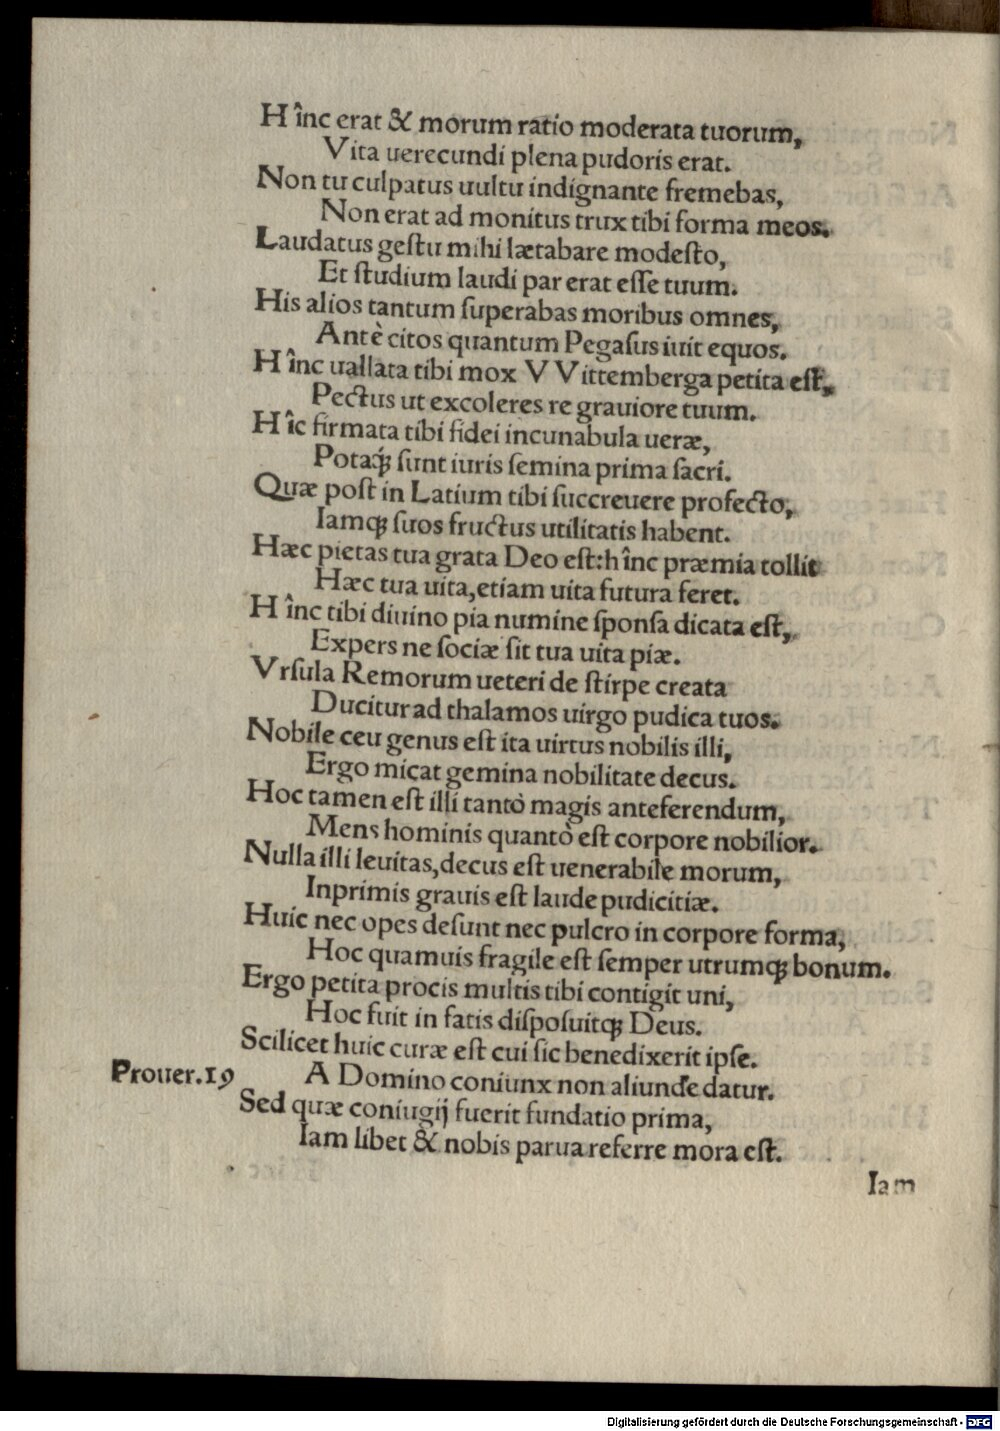 Hînc erat & morum ratio moderata tuorum,
Vita uerecundi plena pudoris erat.
Non tu culpatus uultu indignante fremebas,
Non erat ad monitus trux tibi forma meos.
Laudatus geſtu mihi lætabare modeſto,
Et ſtudium laudi par erat eſſe tuum.
His alios tantum ſuperabas moribus omnes,
Antè citos quantum Pegaſus iuit equos.
Hînc uallata tibi mox VVittemberga petita eſt,
Pectus ut excoleres re grauiore tuum.
Hîc firmata tibi fidei incunabula ueræ,
Potaq́ꝫ ſunt iuris ſemina prima ſacri.
Quæ poſt in Latium tibi ſuccreuere profecto,
Iamqꝫ ſuos fructus utilitatis habent.
Hæc pietas tua grata Deo eſt: hînc præmia tollit
Hæc tua uita, etiam uita futura feret.
Hînc tibi diuino pia numine ſponſa dicata eſt,
Expers ne ſociæ ſit tua uita piæ.
Vrſula Remorum ueteri de ſtirpe creata
Ducitur ad thalamos uirgo pudica tuos.
Nobile ceu genus eſt ita uirtus nobilis illi,
Ergo micat gemina nobilitate decus.
Hoc tamen eſt illi tantò magis anteferendum,
Mens hominis quantò eſt corpore nobilior.
Nulla illi leuitas, decus eſt uenerabile morum,
Inprimis grauis eſt laude pudicitiæ.
Huic nec opes deſunt nec pulcro in corpore forma,
Hoc quamuis fragile eſt ſemper utrumqꝫ bonum.
Ergo petita procis multis tibi contigit uni,
Hoc fuit in fatis diſpoſuitqꝫ Deus.
Scilicet huic curæ eſt cui ſic benedixerit ipſe.
Prouer.19 A Domino coniunx non aliunde datur.
Sed quæ coniugij fuerit fundatio prima,
Iam libet & nobis parua referre mora eſt.
Iam
Digitalisierung gefördert durch die Deutsche Forschungsgemeinschaft - DFG